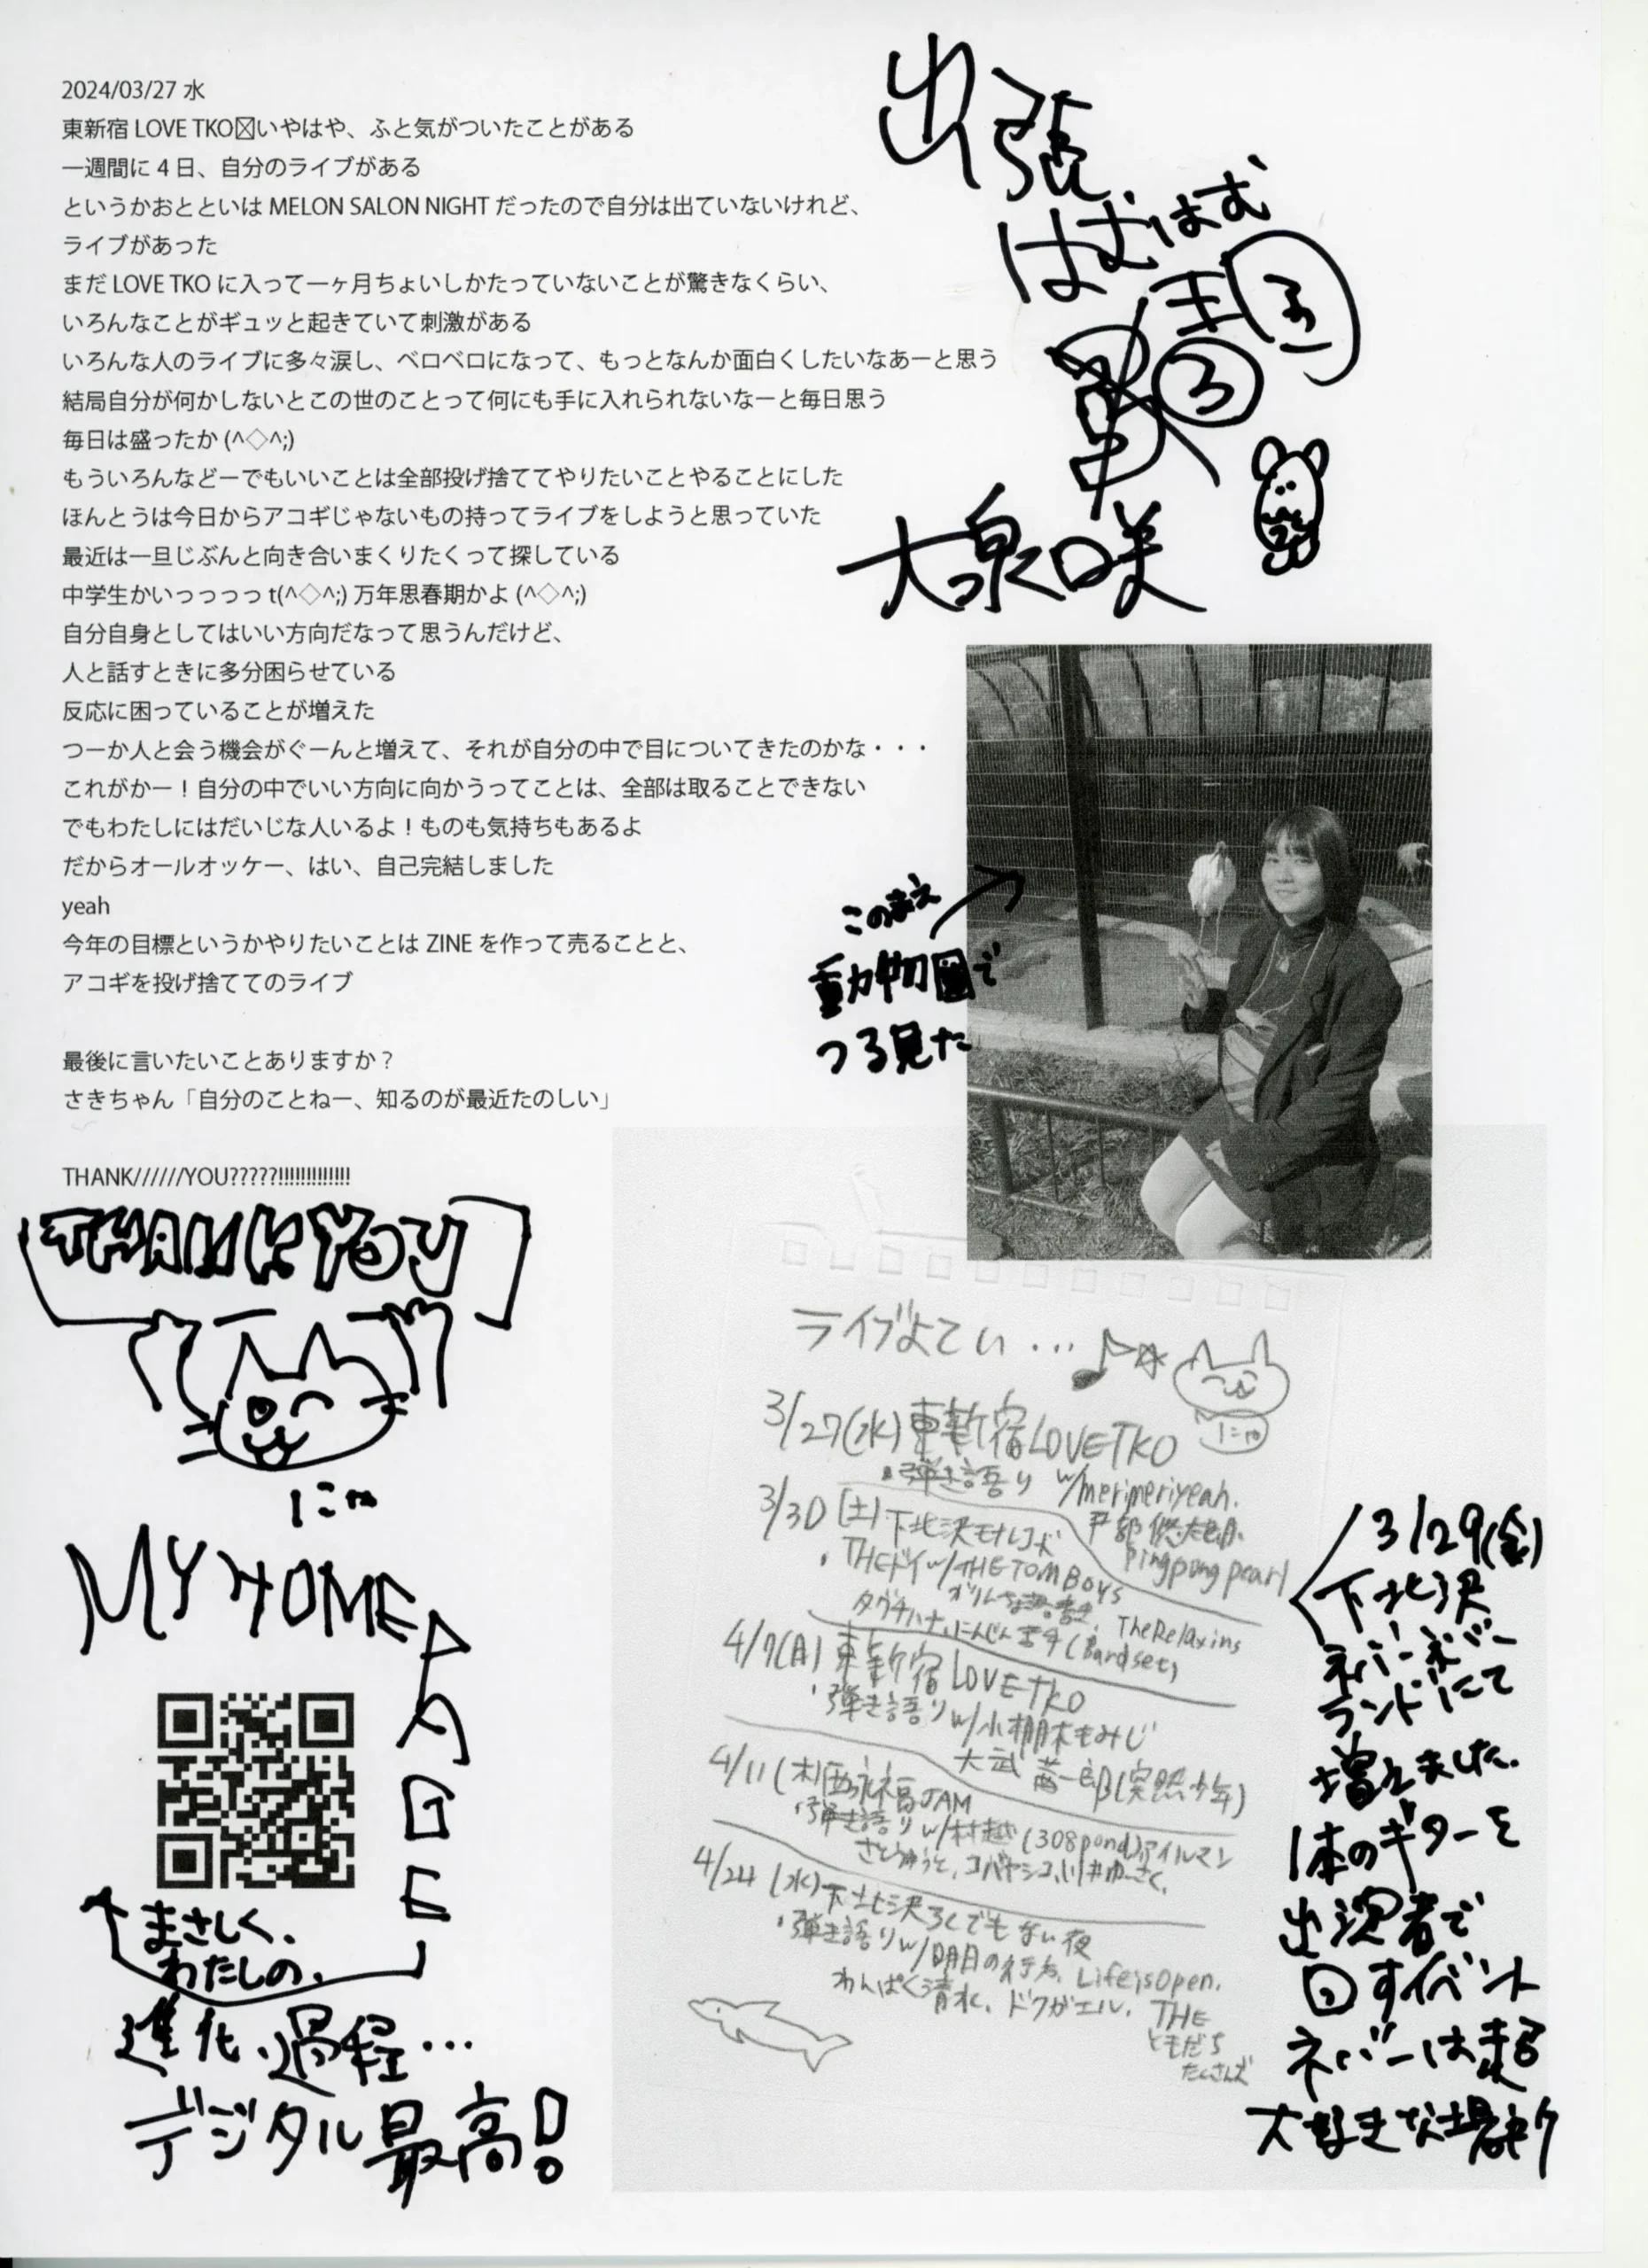 2024/03/27 水
東新宿 LOVE TKO☒いやはや、ふと気がついたことがある
一週間に 4 日、自分のライブがある
というかおとといは MELON SALON NIGHT だったので自分は出ていないけれど、
ライブがあった
まだ LOVE TKO に入って一ヶ月ちょいしかたっていないことが驚きなくらい、
いろんなことがギュッと起きていて刺激がある
いろんな人のライブに多々涙し、ベロベロになって、もっとなんか面白くしたいなあーと思う
結局自分が何かしないとこの世のことって何にも手に入れられないなーと毎日思う
毎日は盛ったか (^◇^;)
もういろんなどーでもいいことは全部投げ捨ててやりたいことやることにした
ほんとうは今日からアコギじゃないもの持ってライブをしようと思っていた
最近は一旦じぶんと向き合いまくりたくって探している
中学生かいっっっっ t(^◇^;) 万年思春期かよ (^◇^;)
自分自身としてはいい方向だなって思うんだけど、
人と話すときに多分困らせている
反応に困っていることが増えた
つーか人と会う機会がぐーんと増えて、それが自分の中で目についてきたのかな・・・
これがかー！自分の中でいい方向に向かうってことは、全部は取ることできない
でもわたしにはだいじな人いるよ！ものも気持ちもあるよ
だからオールオッケー、はい、自己完結しました
yeah
今年の目標というかやりたいことは ZINE を作って売ることと、
アコギを投げ捨ててのライブ
最後に言いたいことありますか？
さきちゃん「自分のことねー、知るのが最近たのしい」
THANK//////YOU?????!!!!!!!!!!!!!
出張
はむはむ
大泉咲
このまえ
動物園で
つる見た
THANK YOU
にゃ
MY HOME
PAGE
まさしく、
わたしの、
進化、過程…
デジタル最高!
ライブよてい…
にゃ
3/27(水)東新宿LOVETKO
・弾き語り w/merimeriyeah.
pingpung pearl
3/30(土)下北沢モナレコード
・THEドイw/THE TOMBOYS
タグチハナ、にんじん
TheRelaxins
(Bandset)
東新宿LOVETKO
・弾き語りw/小棚木もみじ
大武茜一郎(突然少年)
4/11(木)西永福JAM
・弾き語りw/村越(308pond)アイルマン
さとうゆうと、コバヤシコ、川井ゆーさく、
4/24(水)下北沢ろくでもない夜
・弾き語りw/明日の行方、LifeisOpen.
わんぱく清水、ドクガエル、THE
ともだち
たくさんズ
3/29(金)
下北沢
ネバーネバー
ランドにて
増えました。
1本のギターを
出演者で
回すイベント
ネバーは超
大好きな場所